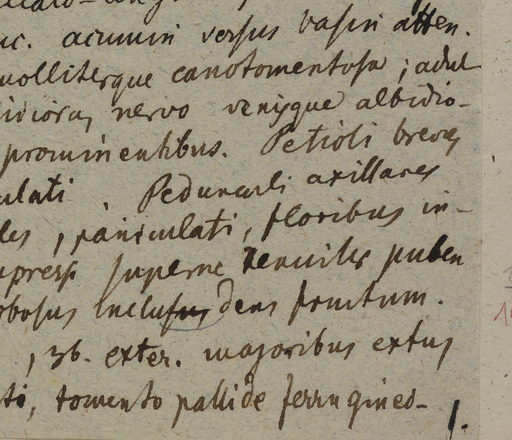 uc. acumin versus basin atten.
molliterque canotomentosa; adul
idiora, nervo venisque albidio-
prominentibus. Petioli breves
ulati. Pedunculi axillares
les, paniculati, floribus in-
mpress superne tenuiter puben
obosus inclusus dens fructum.
, 3b. exter. majoribus extus
ti, tomento pallide ferrugineo-